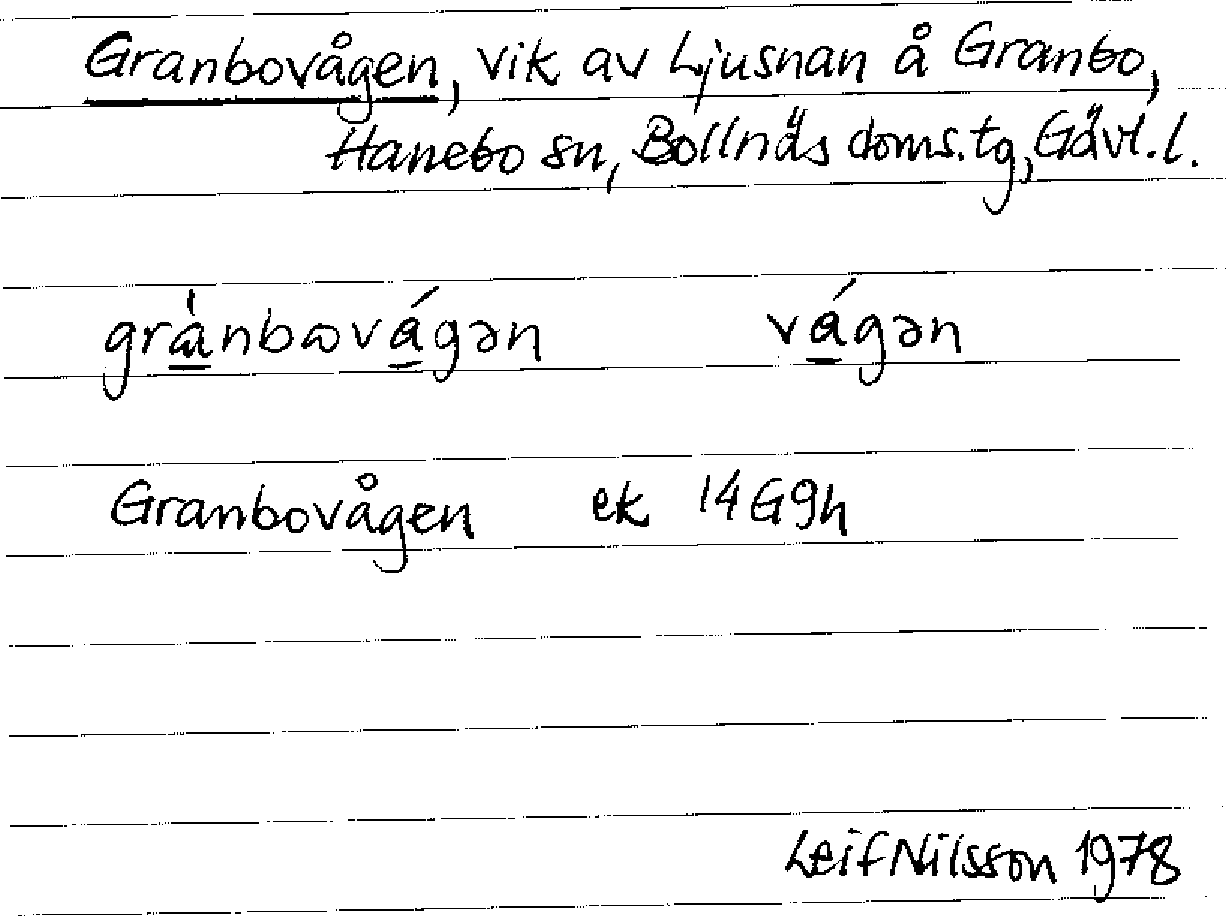 Granbovågen, vik av Ljusnan å Granbo,
Hanebo sn, Bollnäs doms.tg, Gävl.l.
grànbɷvágən vágən
Granbovågen ek 14G9h
Leif Nilsson 1978